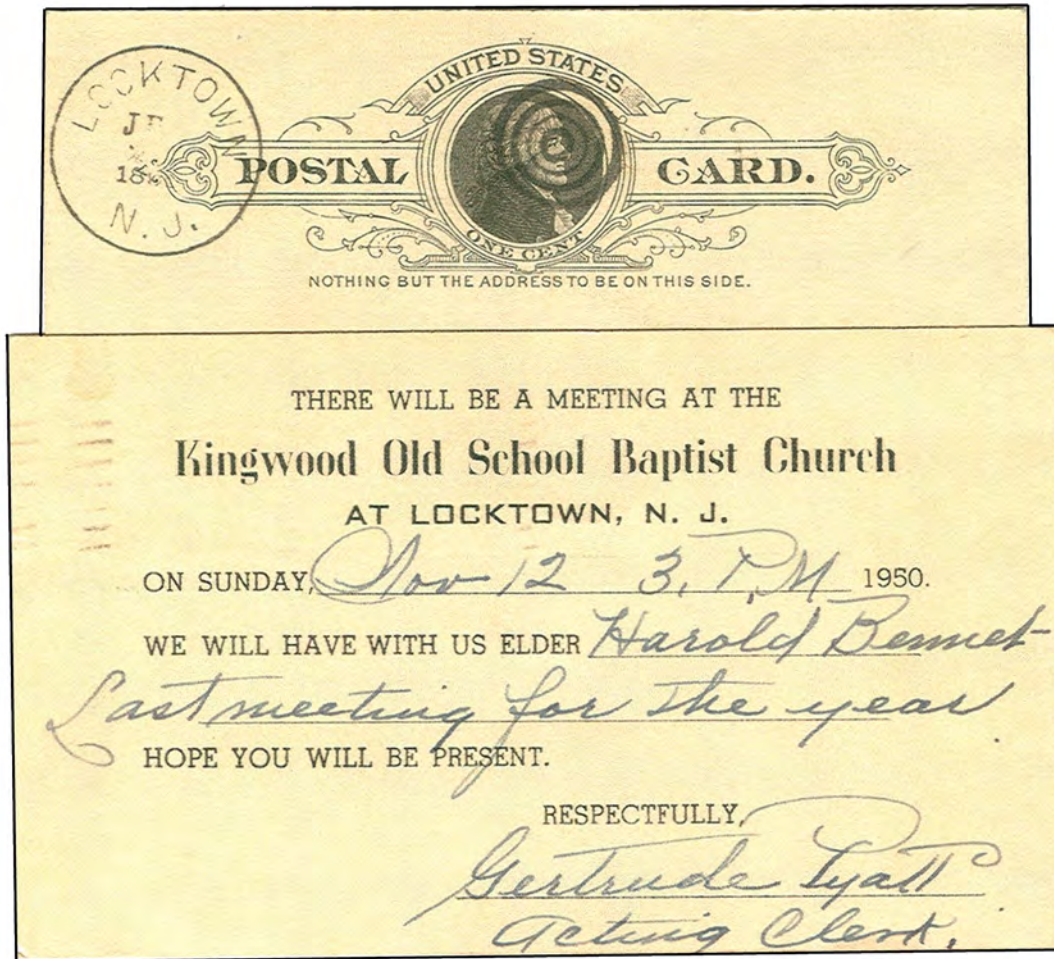 LOCKTOWN
N. J.
UNITED STATES
POSTAL CARD.
ONE CENT
NOTHING BUT THE ADDRESS TO BE ON THIS SIDE.
THERE WILL BE A MEETING AT THE
Kingwood Old School Baptist Church
AT LOCKTOWN, N. J.
ON SUNDAY, Nov 12 3, P.M 1950.
WE WILL HAVE WITH US ELDER Harold Bennet
Last meeting for the year
HOPE YOU WILL BE PRESENT.
RESPECTFULLY,
Gertrude Pyatt
Acting Clerk.